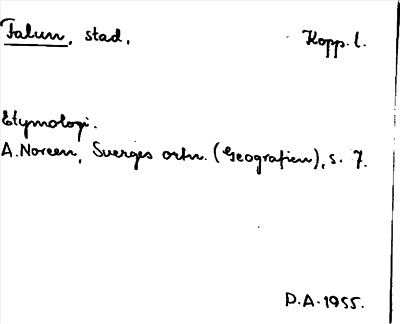 Falun, stad. Kopp. l.
Etymologi.
A. Noreen, Sveriges ortn. (Geografien), s. 7.
D.A. 1955.